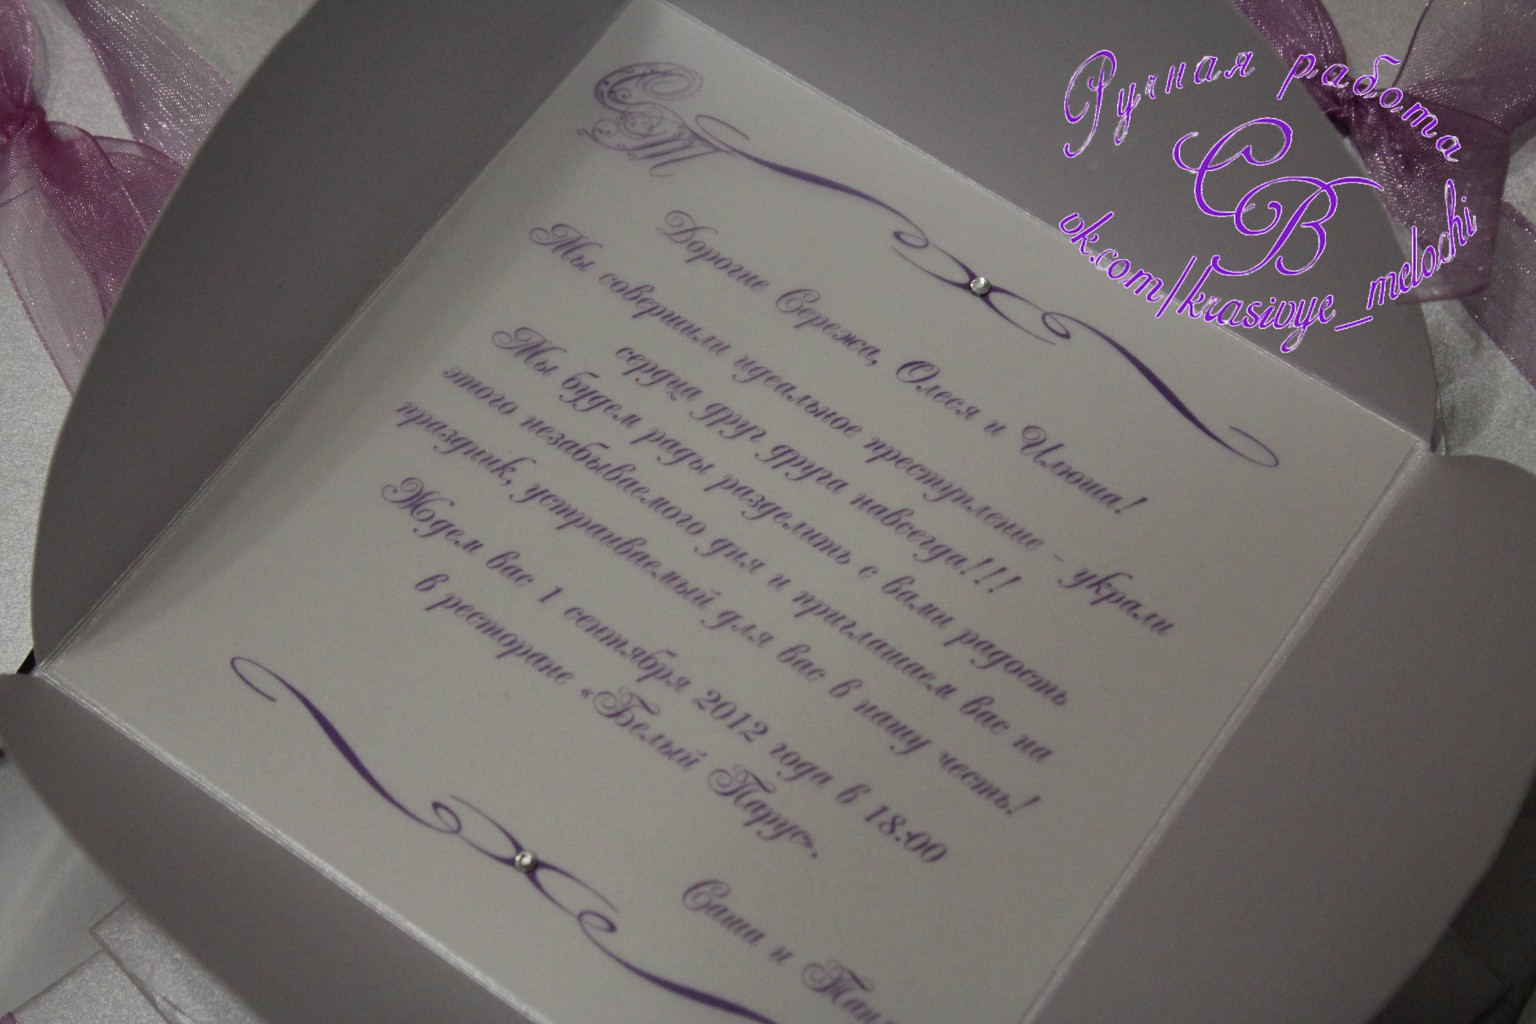 СТ
Дорогие Сережа, Олеся и Илюша!
Мы совершили идеальное преступление - украли
сердца друг друга навсегда!!!
Мы будем рады разделить с вами радость
этого незабываемого дня и приглашаем вас на
праздник, устраиваемый для вас в нашу честь!
Ждем вас 1 сентября 2012 года в 18:00
в ресторане «Белый Парус».
Саша и
Ручная работа
СВ
vk.com/krasivye_melochi